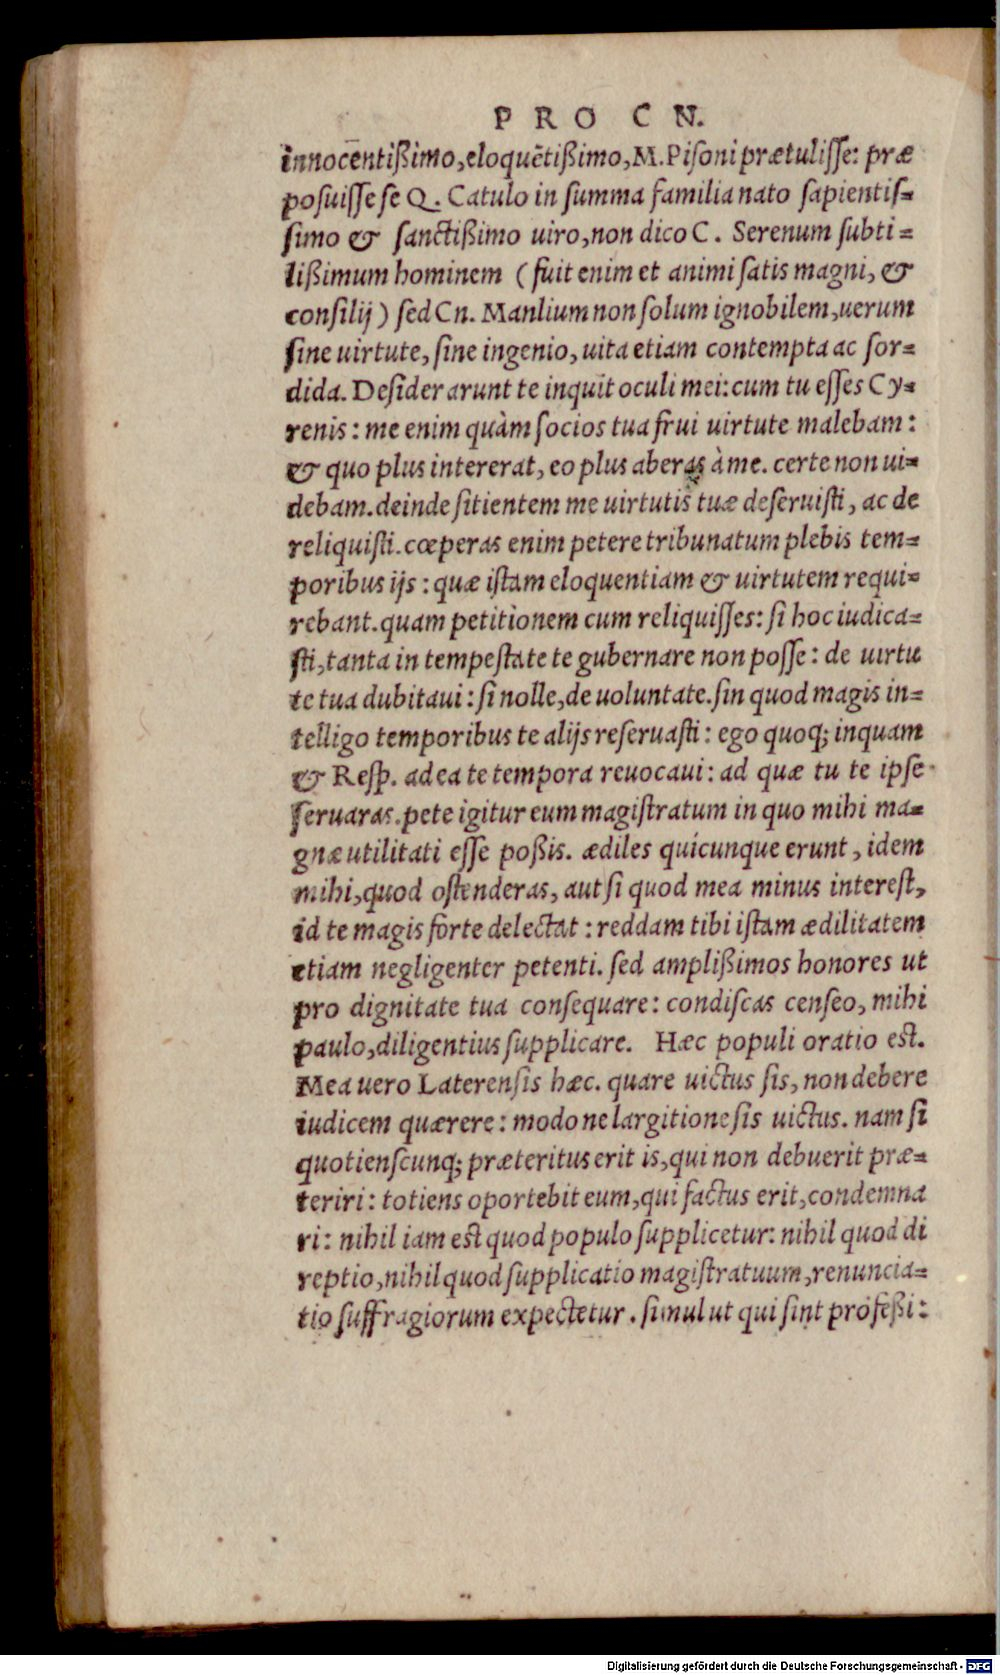 PRO CN.
innocentißimo, eloquētißimo, M. Pisoni prætulisse: præ
posuisse se Q. Catulo in summa familia nato sapientis=
simo & sanctißimo uiro, non dico C. Serenum subti=
lißimum hominem (fuit enim et animi satis magni, &
consilij) sed Cn. Manlium non solum ignobilem, uerum
sine uirtute, sine ingenio, uita etiam contempta ac sor=
dida. Desiderarunt te inquit oculi mei: cum tu esses Cy=
renis: me enim quàm socios tua frui uirtute malebam:
& quo plus intererat, eo plus aberas à me. certe non ui=
debam. deinde sitientem me uirtutis tuæ deseruisti, ac de
reliquisti. cœperas enim petere tribunatum plebis tem=
poribus ijs: quæ istam eloquentiam & uirtutem requi=
rebant. quam petitionem cum reliquisses: si hoc iudica=
sti, tanta in tempestate te gubernare non posse: de uirtu
te tua dubitaui: si nolle, de uoluntate. sin quod magis in=
telligo temporibus te alijs reseruasti: ego quoq; inquam
& Resp. ad ea te tempora reuocaui: ad quæ tu te ipse
seruaras. pete igitur eum magistratum in quo mihi ma=
gnæ utilitati esse poßis. ædiles quicunque erunt, idem
mihi, quod ostenderas, aut si quod mea minus interest,
id te magis forte delectat: reddam tibi istam ædilitatem
etiam negligenter petenti. sed amplißimos honores ut
pro dignitate tua consequare: condiscas censeo, mihi
paulo, diligentius supplicare. Hæc populi oratio est.
Mea uero Laterensis hæc. quare uictus sis, non debere
iudicem quærere: modo ne largitione sis uictus. nam si
quotienscunq; præteritus erit is, qui non debuerit præ=
teriri: totiens oportebit eum, qui factus erit, condemna
ri: nihil iam est quod populo supplicetur: nihil quod di
reptio, nihil quod supplicatio magistratuum, renuncia=
tio suffragiorum expectetur. simul ut qui sint profeßi:
Digitalisierung gefördert durch die Deutsche Forschungsgemeinschaft - DFG